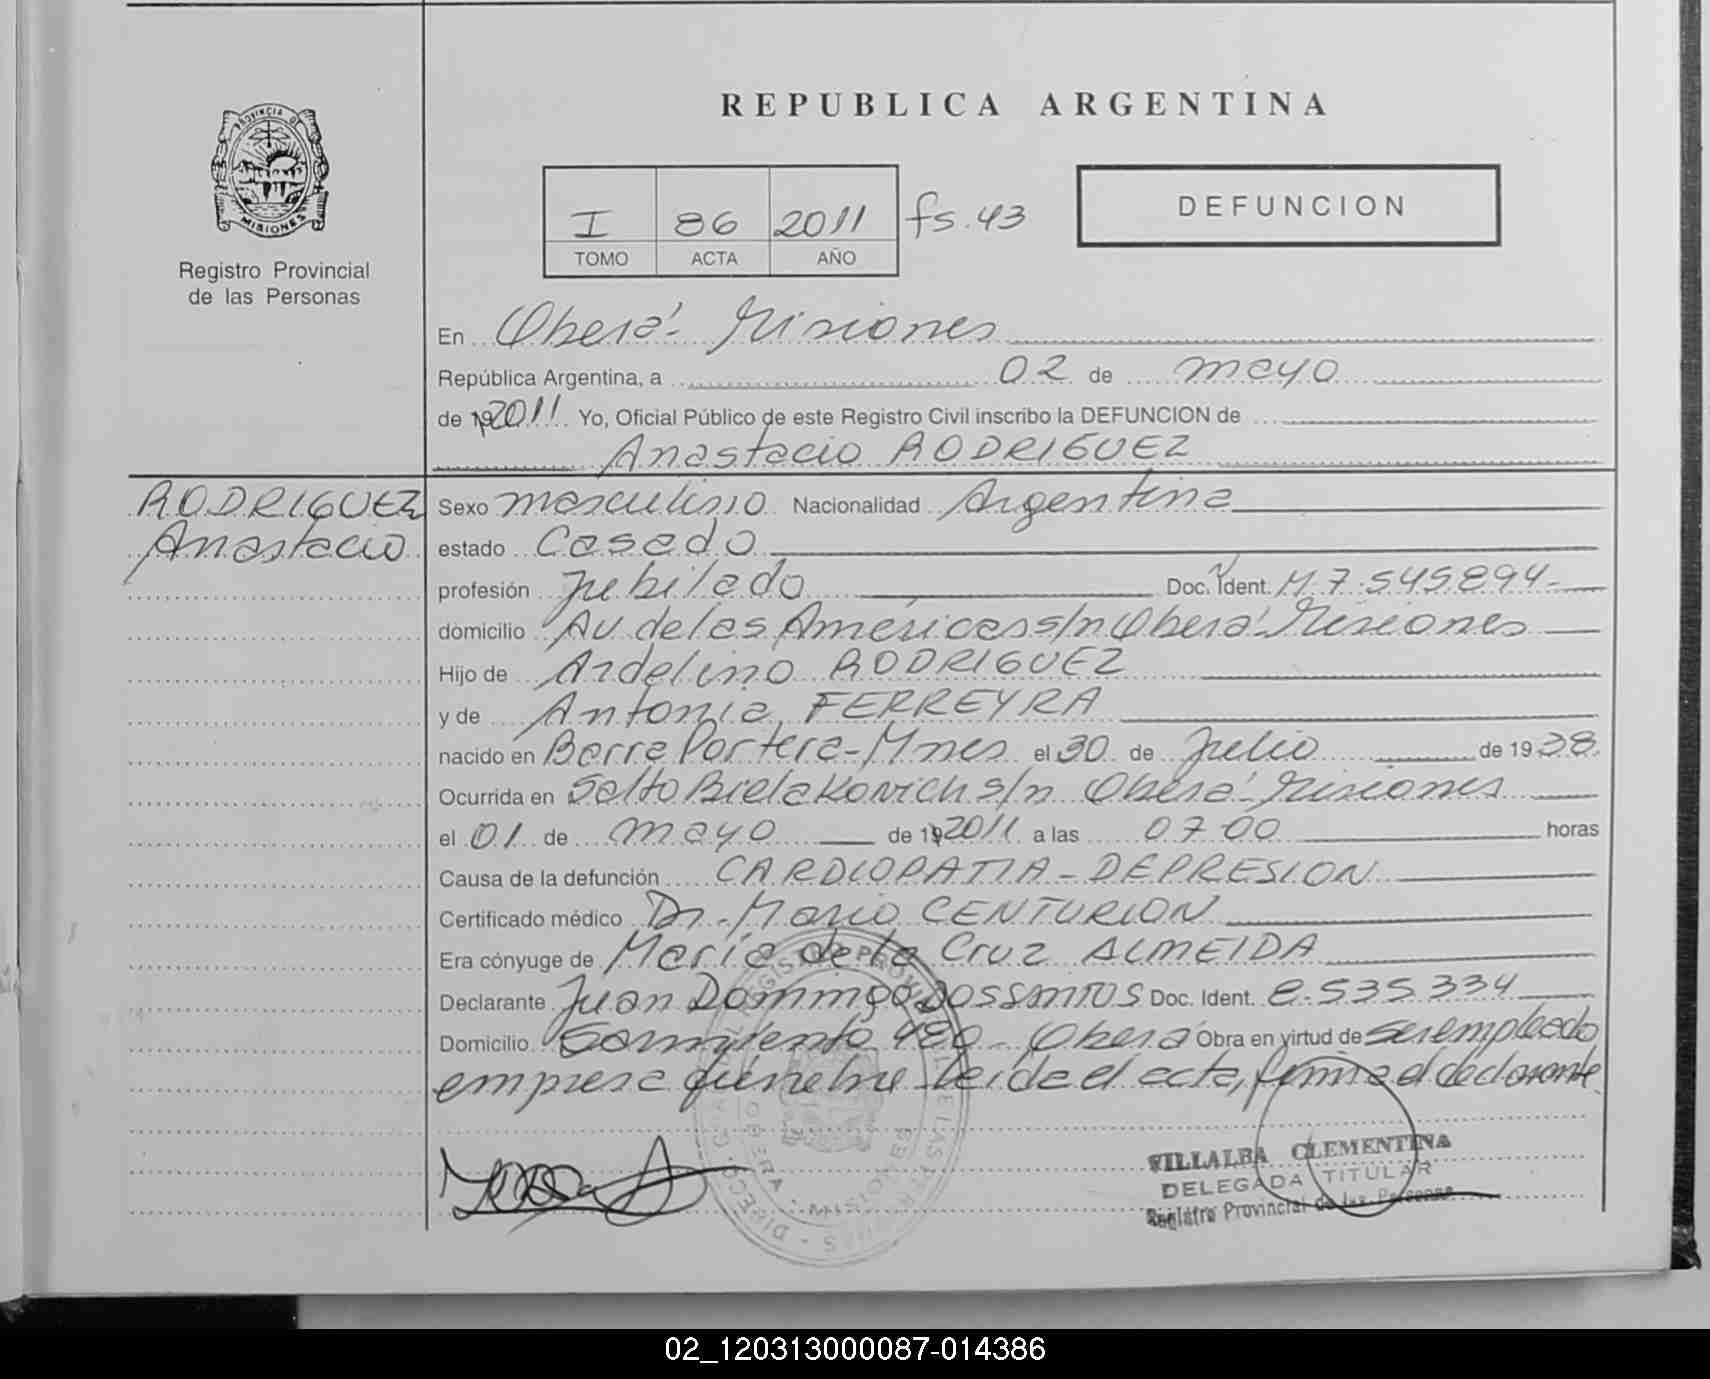 REPUBLICA ARGENTINA
PROVINCIA DE
MISIONES
Registro Provincial
de las Personas
I 86 2011 fs. 43
TOMO ACTA AÑO
DEFUNCION
En Oberá - Misiones
República Argentina, a 02 de mayo
de 19 2011 Yo, Oficial Público de este Registro Civil inscribo la DEFUNCION de
Anastacio RODRIGUEZ
RODRIGUEZ
Anastacio
Sexo masculino Nacionalidad Argentina
estado Casado
profesión Jubilado Doc. Ident. M 7.545.894-
domicilio Av. de las Américas s/n Oberá - Misiones
Hijo de Ardelino RODRIGUEZ
y de Antonia FERREYRA
nacido en Barra Portera - Mnes el 30 de Julio de 1938.
Ocurrida en Salto Bielakovich s/n Oberá - Misiones
el 01 de mayo de 19 2011 a las 07 00 horas
Causa de la defunción CARDIOPATIA - DEPRESION
Certificado médico Dr. Mario CENTURION
Era cónyuge de María de la Cruz ALMEIDA
Declarante Juan Domingo DOSSANTOS Doc. Ident. 8.535.334
Domicilio Sarmiento 480 - Oberá Obra en virtud de ser empleado
empresa fúnebre Leída el acta, firma el declarante
VILLALBA CLEMENTINA
DELEGADA TITULAR
Registro Provincial de las Personas
OBERA - MISIONES
02_120313000087-014386